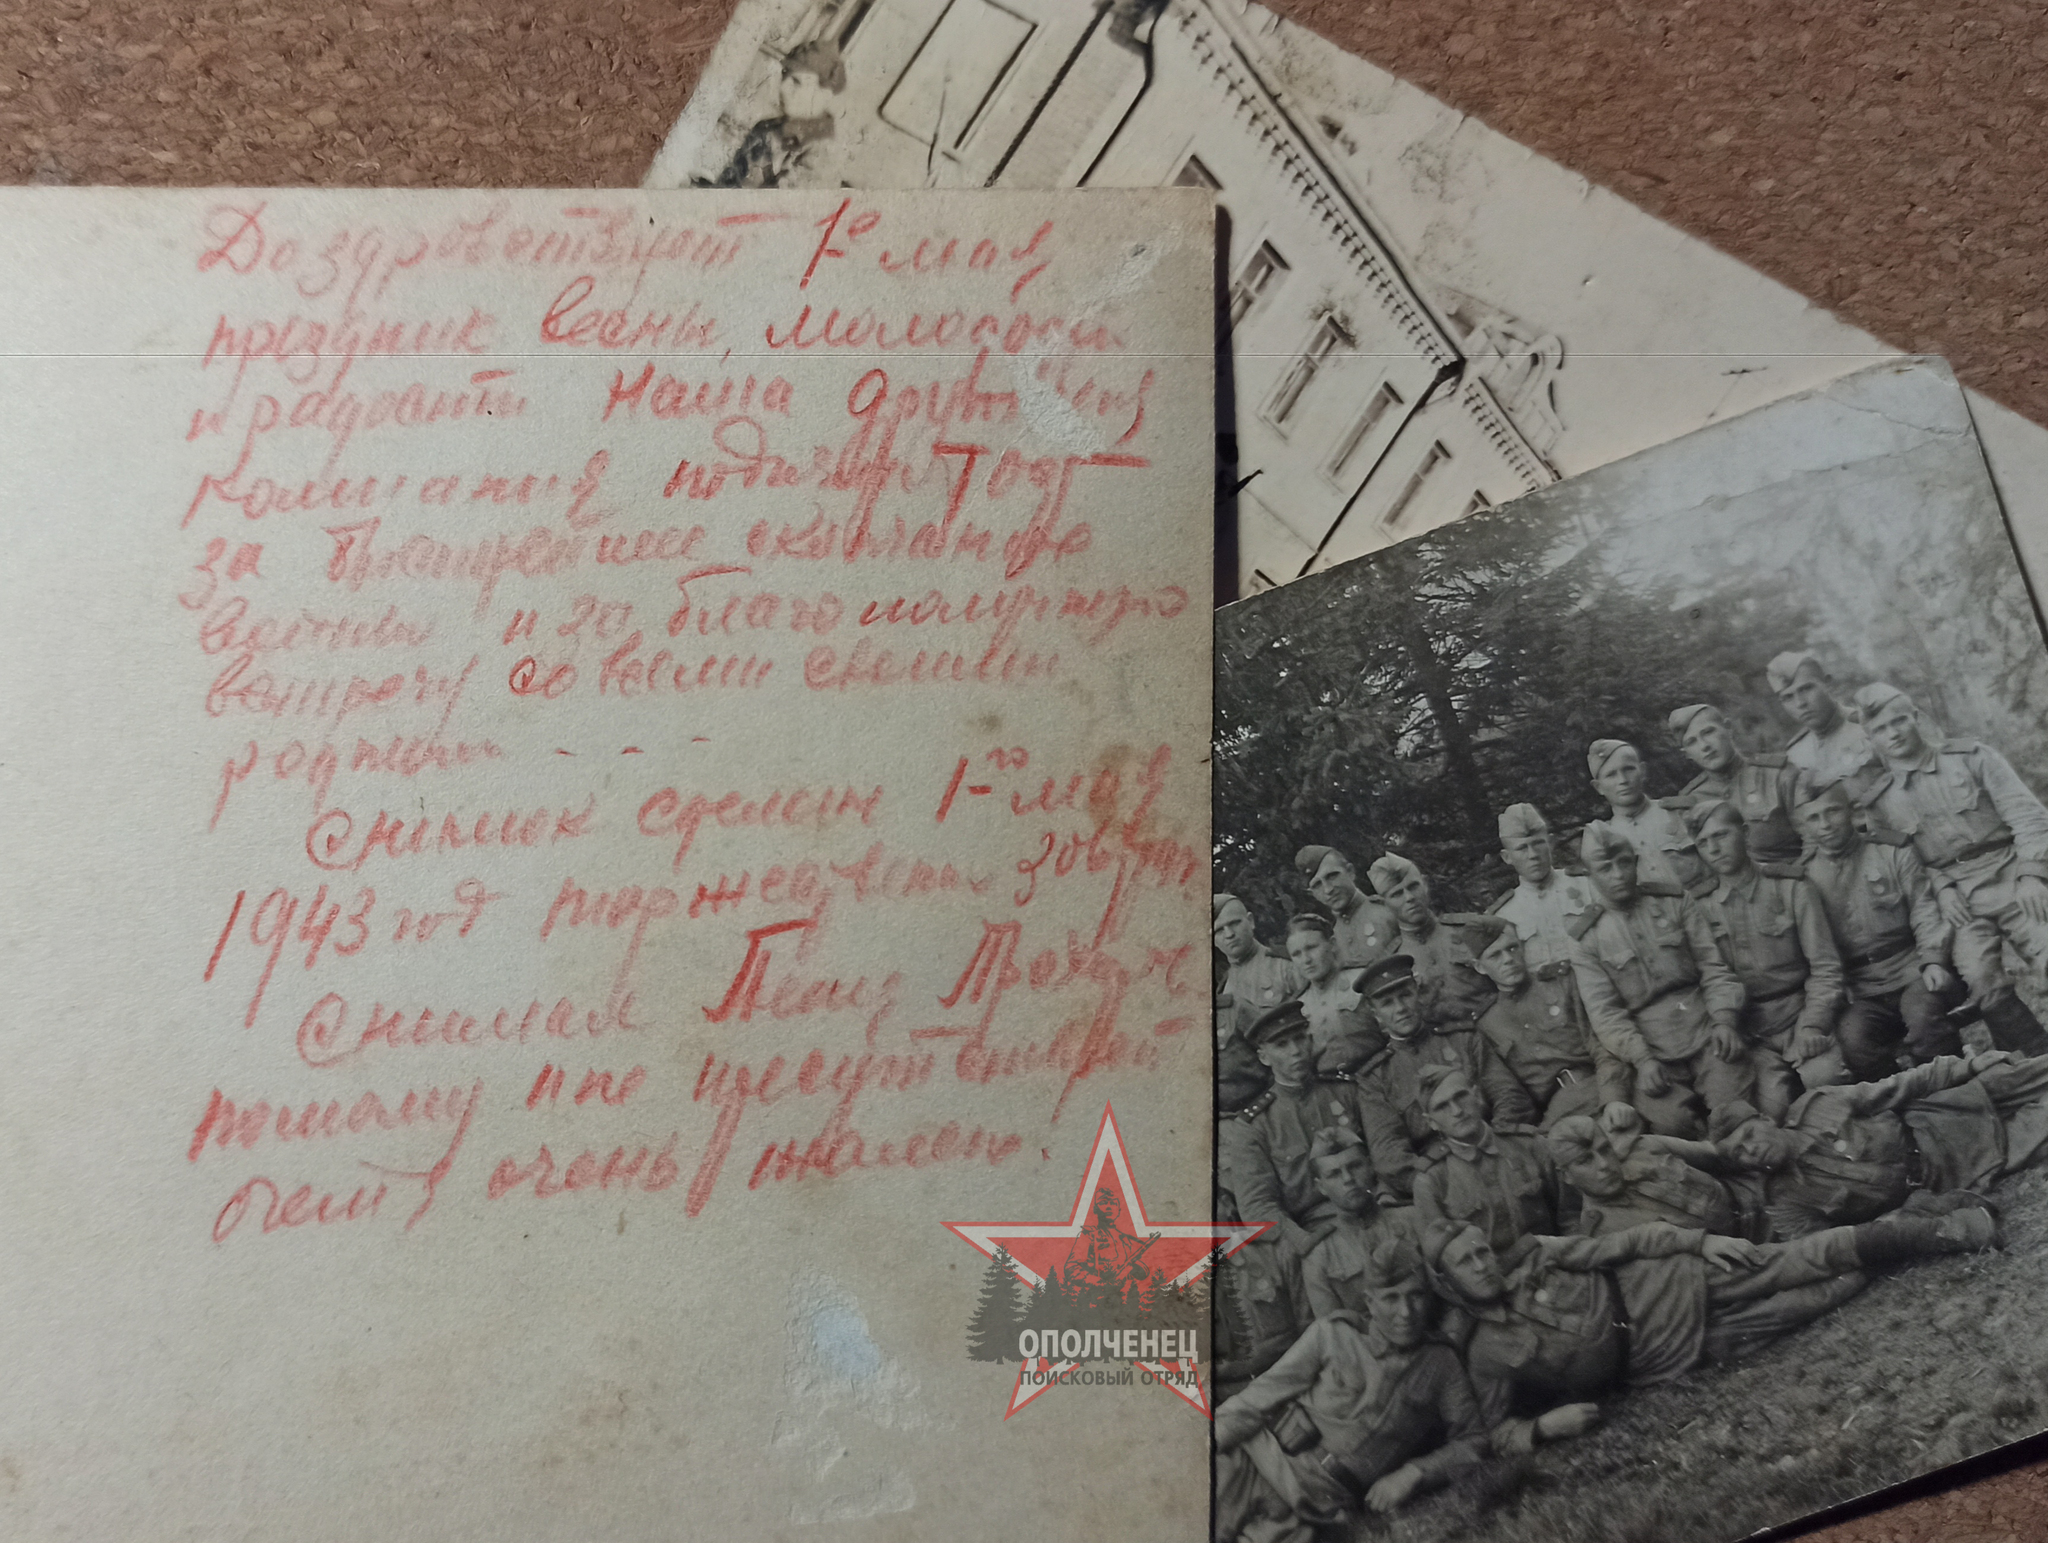 Да здравствует 1-е мая,
праздник весны, молодости
и радости наша дружная
компания подъзывает Тост
за быстрейшее окончание
войны и за благополучную
встречу со всеми своими
родными - - -
Снимок сделан 1-го мая
1943 год торжествен.
Снимал Прохорыч
потому и не присутствует
очень жалею!
ОПОЛЧЕНЕЦ
ПОИСКОВЫЙ ОТРЯД